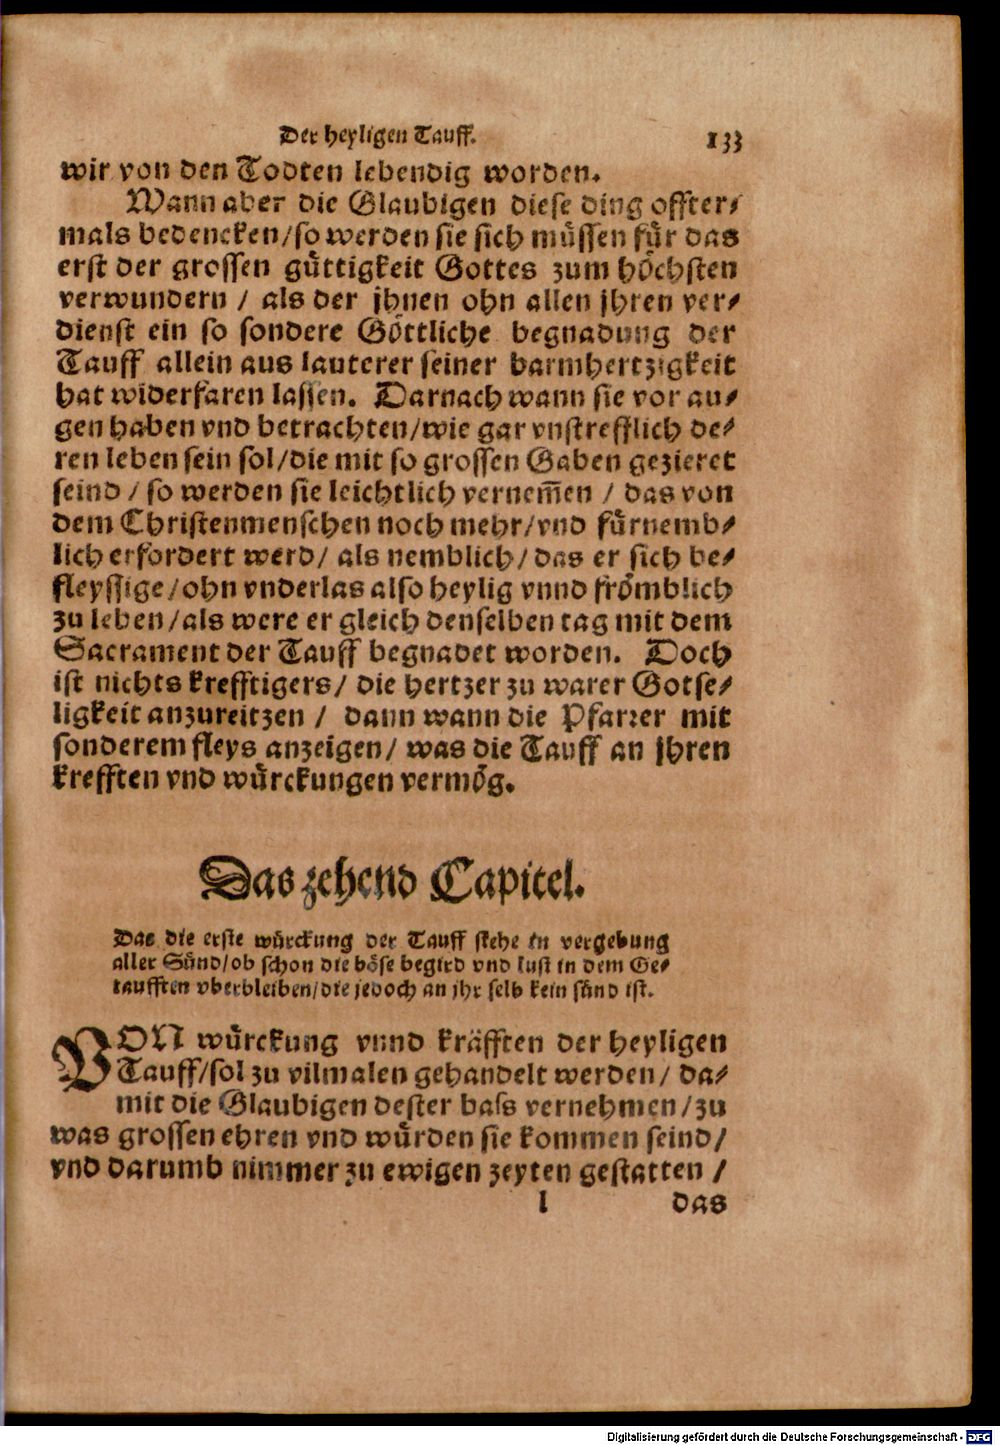 Der heyligen Tauff. 133
wir von den Todten lebendig worden.
Wann aber die Glaubigen diese ding offter⸗
mals bedencken/so werden sie sich müssen für das
erst der grossen güttigkeit Gottes zum höchsten
verwundern / als der jhnen ohn allen jhren ver⸗
dienst ein so sondere Göttliche begnadung der
Tauff allein aus lauterer seiner barmhertzigkeit
hat widerfaren lassen. Darnach wann sie vor au⸗
gen haben vnd betrachten/wie gar vnstrefflich de⸗
ren leben sein sol/die mit so grossen Gaben gezieret
seind / so werden sie leichtlich vernem̃en / das von
dem Christenmenschen noch mehr/vnd fürnemb⸗
lich erfordert werd/ als nemblich/das er sich be⸗
fleyssige/ohn vnderlas also heylig vnnd frömblich
zu leben/als were er gleich denselben tag mit dem
Sacrament der Tauff begnadet worden. Doch
ist nichts krefftigers/ die hertzer zu warer Gotse⸗
ligkeit anzureitzen / dann wann die Pfarrer mit
sonderem fleys anzeigen/ was die Tauff an jhren
krefften vnd würckungen vermög.
Das zehend Capitel.
Das die erste würckung der Tauff stehe in vergebung
aller Sünd/ob schon die böse begird vnd lust in dem Ge⸗
taufften vberbleiben/die jedoch an jhr selb kein sünd ist.
VON würckung vnnd kräfften der heyligen
Tauff/sol zu vilmalen gehandelt werden/ da⸗
mit die Glaubigen dester bass vernehmen/zu
was grossen ehren vnd würden sie kommen seind/
vnd darumb nimmer zu ewigen zeyten gestatten /
l das
Digitalisierung gefördert durch die Deutsche Forschungsgemeinschaft - DFG